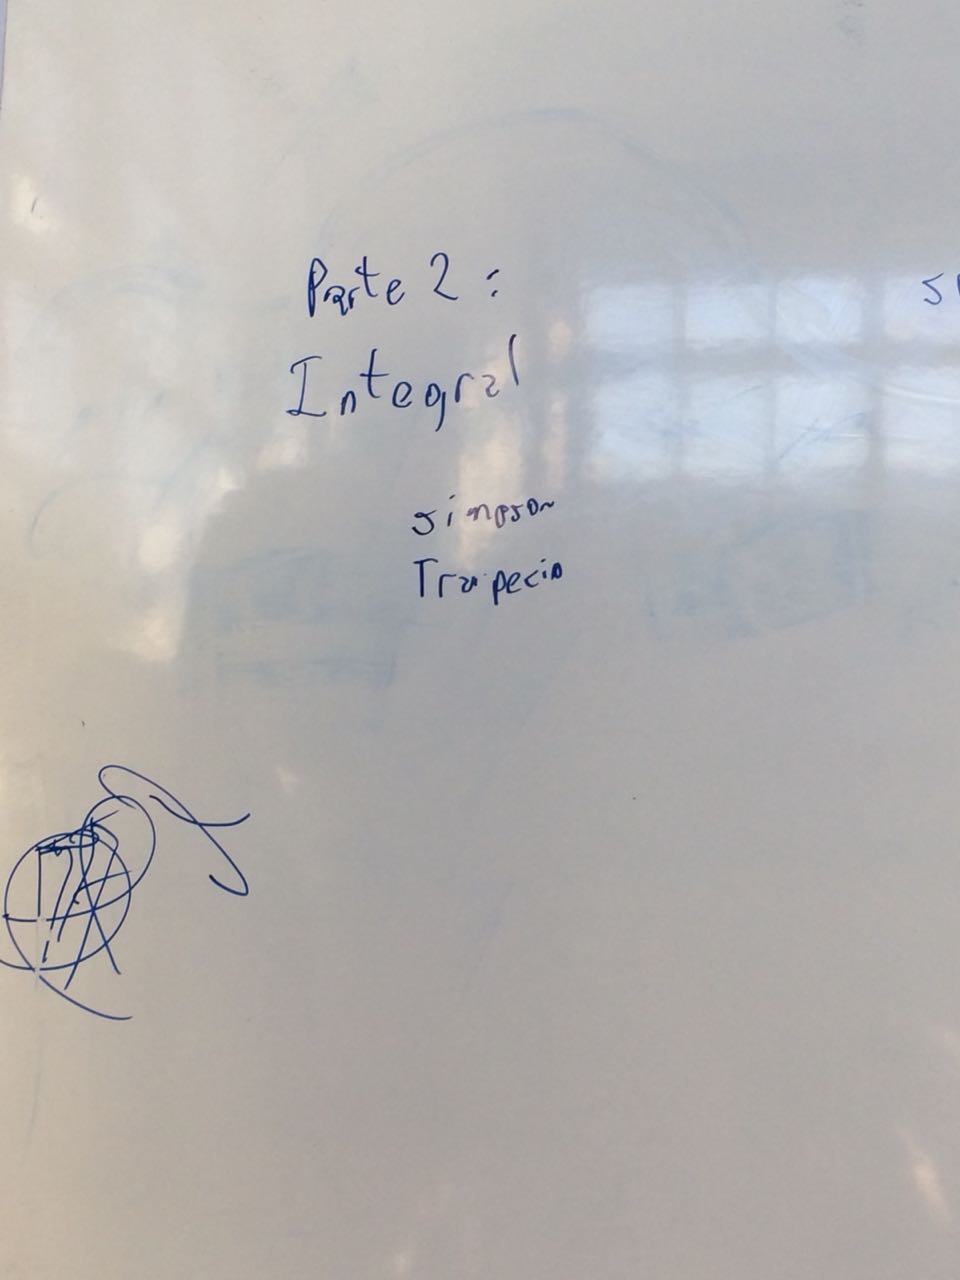 Parte 2:
Integral
simpson
Trapecio